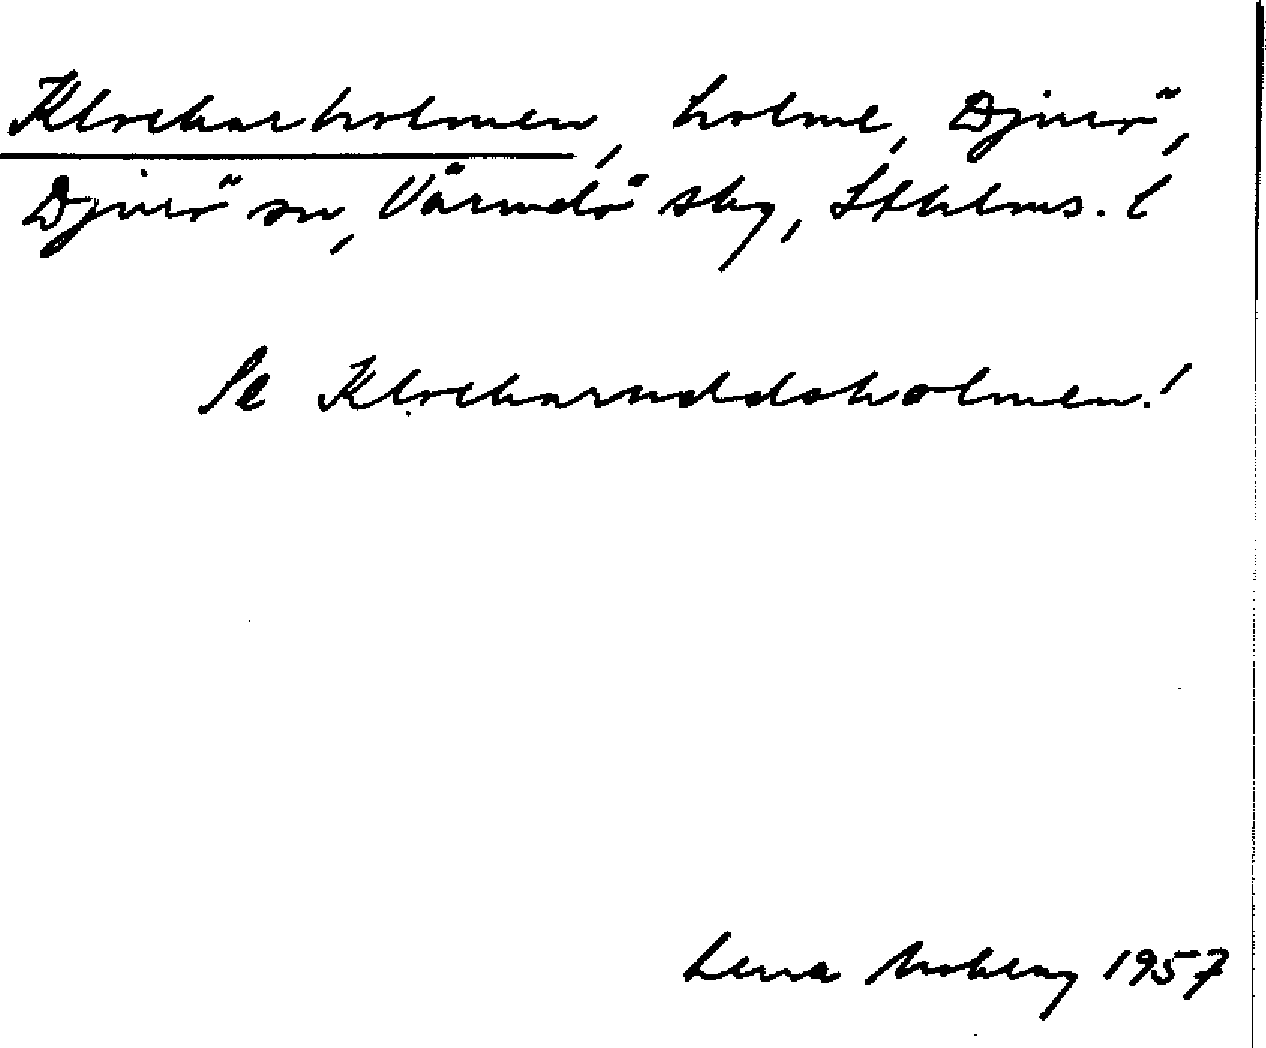 Klockarholmen, holme, Djurö,
Djurö sn, Värmdö skg, Sthlms. l
Se Klockaruddsholmen!
Lena Moberg 1957